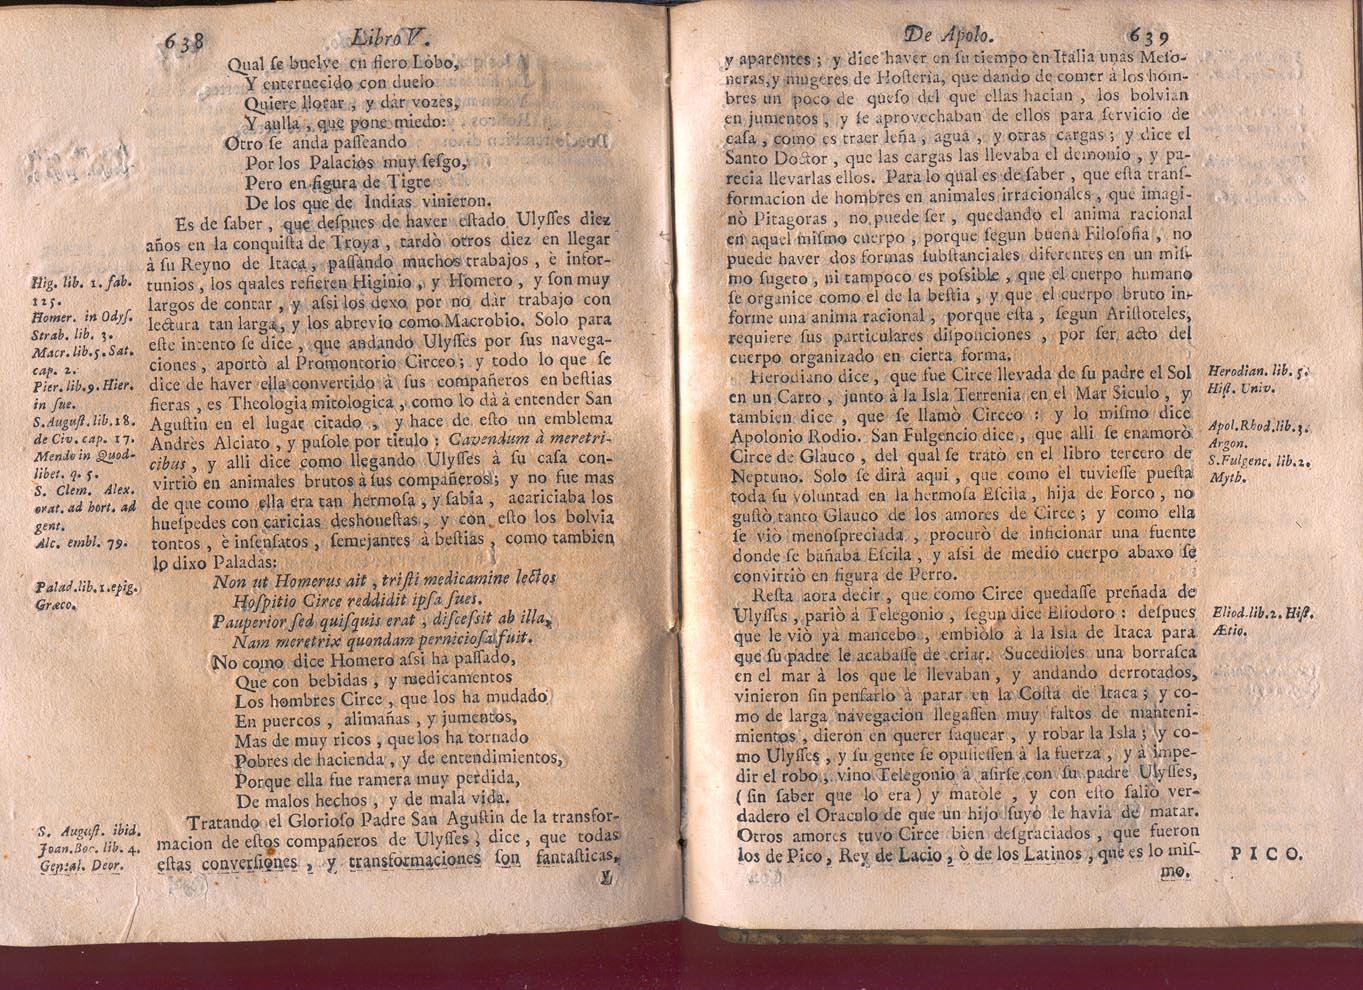 638 Libro V.
Qual ſe buelve en fiero Lobo,
Y enternecido con duelo
Quiere llorar, y dár vozes,
Y aulla, que pone miedo:
Otro ſe anda paſſeando
Por los Palacios muy ſeſgo,
Pero en figura de Tigre
De los que de Indias vinieron.
Es de ſaber, que deſpues de haver eſtado Ulyſſes diez
años en la conquiſta de Troya, tardò otros diez en llegar
à ſu Reyno de Itaca, paſſando muchos trabajos, è infor-
tunios, los quales refieren Higinio, y Homero, y ſon muy
largos de contar, y aſsi los dexo por no dár trabajo con
lectura tan larga, y los abrevio como Macrobio. Solo para
eſte intento ſe dice, que andando Ulyſſes por ſus navega-
ciones, aportò al Promontorio Circeo; y todo lo que ſe
dice de haver ella convertido à ſus compañeros en beſtias
fieras, es Theologia mitologica, como lo dá à entender San
Aguſtin en el lugar citado, y hace de eſto un emblema
Andrès Alciato, y puſole por titulo: Cavendum à meretri-
cibus, y alli dice como llegando Ulyſſes à ſu caſa con-
virtiò en animales brutos à ſus compañeros; y no fue mas
de que como ella era tan hermoſa, y ſabia, acariciaba los
hueſpedes con caricias deshoneſtas, y con eſto los bolvia
tontos, è inſenſatos, ſemejantes à beſtias, como tambien
lo dixo Paladas:
Non ut Homerus ait, triſti medicamine lectos
Hoſpitio Circe reddidit ipſa ſues.
Pauperior ſed quiſquis erat, diſceſsit ab illa,
Nam meretrix quondam pernicioſa fuit.
No como dice Homero aſsi ha paſſado,
Que con bebidas, y medicamentos
Los hombres Circe, que los ha mudado
En puercos, alimañas, y jumentos,
Mas de muy ricos, que los ha tornado
Pobres de hacienda, y de entendimientos,
Porque ella fue ramera muy perdida,
De malos hechos, y de mala vida.
Tratando el Glorioſo Padre San Aguſtin de la transfor-
macion de eſtos compañeros de Ulyſſes, dice, que todas
eſtas converſiones, y transformaciones ſon fantaſticas,
y
Hig. lib. 1. fab.
125.
Homer. in Odyſ.
Strab. lib. 3.
Macr. lib. 5. Sat.
cap. 2.
Pier. lib. 9. Hier.
in ſue.
S. Auguſt. lib. 18.
de Civ. cap. 17.
Mendo in Quod-
libet. q. 5.
S. Clem. Alex.
orat. ad hort. ad
gent.
Alc. embl. 79.
Palad. lib. 1. epig.
Græco.
S. Auguſt. ibid.
Joan. Boc. lib. 4.
Geneal. Deor.
De Apolo. 639
y aparentes; y dice haver en ſu tiempo en Italia unas Meſo-
neras, y mugeres de Hoſteria, que dando de comer à los hom-
bres un poco de queſo del que ellas hacian, los bolvian
en jumentos, y ſe aprovechaban de ellos para ſervicio de
caſa, como es traer leña, agua, y otras cargas; y dice el
Santo Doctor, que las cargas las llevaba el demonio, y pa-
recia llevarlas ellos. Para lo qual es de ſaber, que eſta transf-
formacion de hombres en animales irracionales, que imagi-
nò Pitagoras, no puede ſer, quedando el anima racional
en aquel miſmo cuerpo, porque ſegun buena Filoſofia, no
puede haver dos formas ſubſtanciales diferentes en un miſ-
mo ſugeto, ni tampoco es poſsible, que el cuerpo humano
ſe organice como el de la beſtia, y que el cuerpo bruto in-
forme una anima racional, porque eſta, ſegun Ariſtoteles,
requiere ſus particulares diſpoſiciones, por ſer acto del
cuerpo organizado en cierta forma.
Herodiano dice, que fue Circe llevada de ſu padre el Sol
en un Carro, junto à la Isla Terrenia en el Mar Siculo, y
tambien dice, que ſe llamò Circeo: y lo miſmo dice
Apolonio Rodio. San Fulgencio dice, que alli ſe enamorò
Circe de Glauco, del qual ſe tratò en el libro tercero de
Neptuno. Solo ſe dirà aqui, que como el tuvieſſe pueſta
toda ſu voluntad en la hermoſa Eſcila, hija de Forco, no
guſtò tanto Glauco de los amores de Circe; y como ella
ſe viò menoſpreciada, procurò de inficionar una fuente
donde ſe bañaba Eſcila, y aſsi de medio cuerpo abaxo ſe
convirtiò en figura de Perro.
Reſta aora decir, que como Circe quedaſſe preñada de
Ulyſſes, pariò à Telegonio, ſegun dice Eliodoro: deſpues
que le viò yà mancebo, embiòlo à la Isla de Itaca para
que ſu padre le acabaſſe de criar. Sucediòles una borraſca
en el mar à los que le llevaban, y andando derrotados,
vinieron ſin penſarlo à parar en la Coſta de Itaca; y co-
mo de larga navegacion llegaſſen muy faltos de manteni-
mientos, dieron en querer ſaquear, y robar la Isla; y co-
mo Ulyſſes, y ſu gente ſe opuſieſſen à la fuerza, y à impe-
dir el robo, vino Telegonio à aſirſe con ſu padre Ulyſſes,
(ſin ſaber que lo era) y matòle, y con eſto ſaliò ver-
dadero el Oraculo de que un hijo ſuyo le havia de matar.
Otros amores tuvo Circe bien deſgraciados, que fueron
los de Pico, Rey de Lacio, ò de los Latinos, que es lo miſ-
mo.
Herodian. lib. 5.
Hiſt. Univ.
Apol. Rhod. lib. 3.
Argon.
S. Fulgenc. lib. 2.
Myth.
Eliod. lib. 2. Hiſt.
Ætio.
PICO.